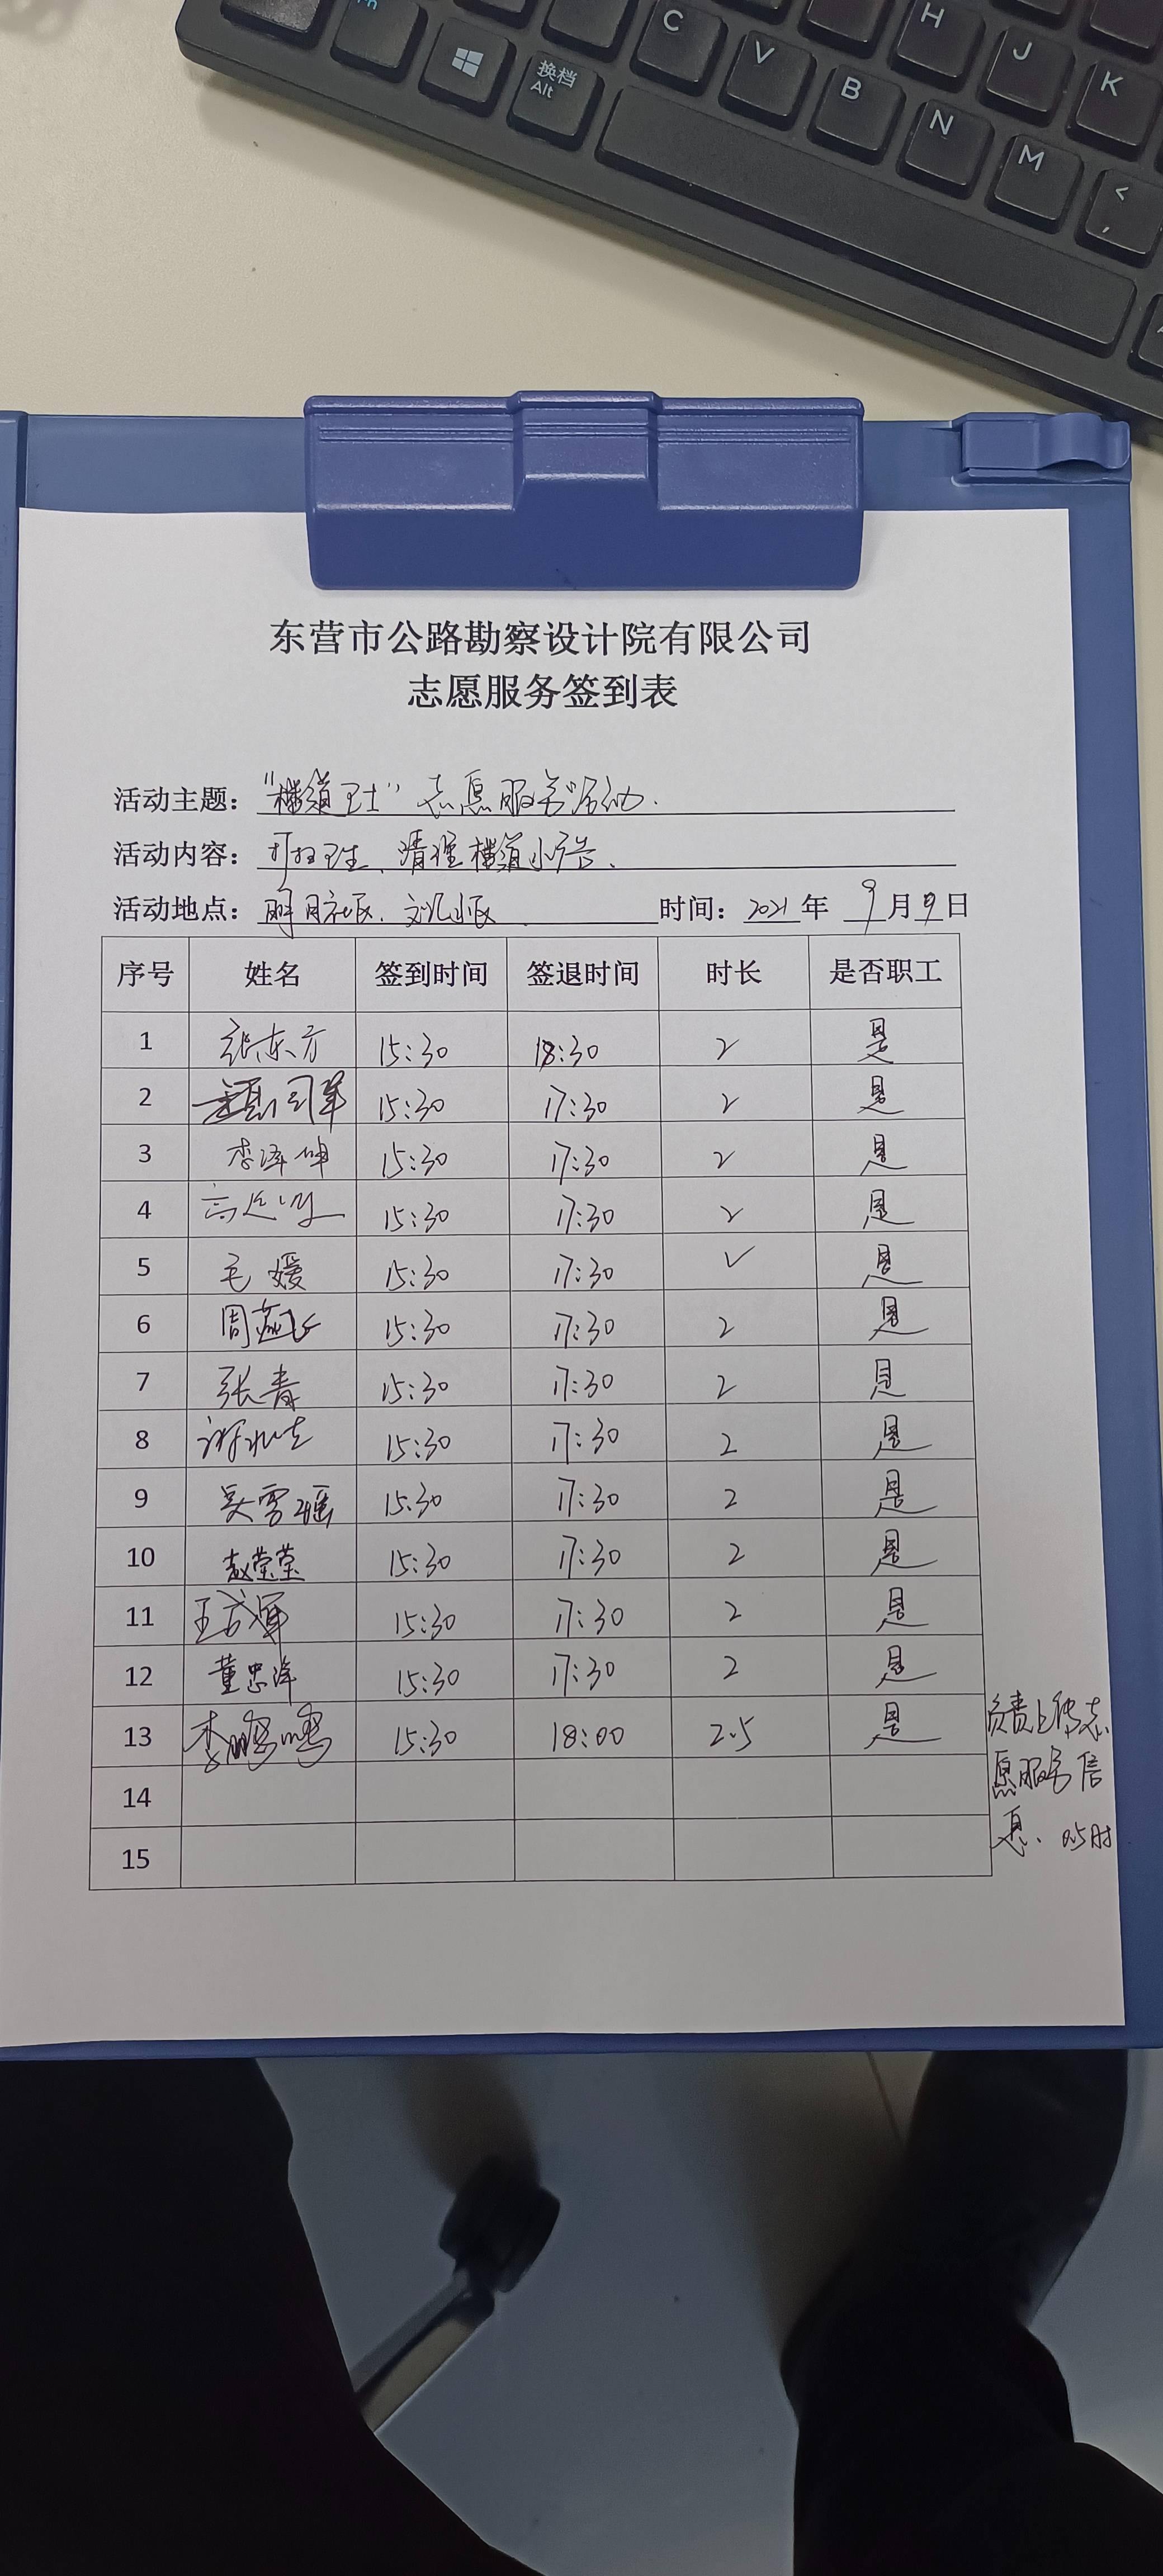 C
V
B
N
M
H
J
K
<
,
Fn
换档
Alt
东营市公路勘察设计院有限公司
志愿服务签到表
活动主题：“楼道卫士”志愿服务活动.
活动内容：打扫卫生、清理楼道小广告.
活动地点：明月社区、文汇小区 时间：2021年 9月9日
序号 姓名 签到时间 签退时间 时长 是否职工
1 张东方 15:30 18:30 2 是
2 15:30 17:30 2 是
3 李泽坤 15:30 17:30 2 是
4 15:30 17:30 2 是
5 毛媛 15:30 17:30 2 是
6 周燕飞 15:30 17:30 2 是
7 张青 15:30 17:30 2 是
8 15:30 17:30 2 是
9 吴雪瑶 15:30 17:30 2 是
10 赵莹莹 15:30 17:30 2 是
11 15:30 17:30 2 是
12 董忠洋 15:30 17:30 2 是
13 李鹏鹏 15:30 18:00 2.5 是
负责上传志
愿服务信
息、0.5时
14
15